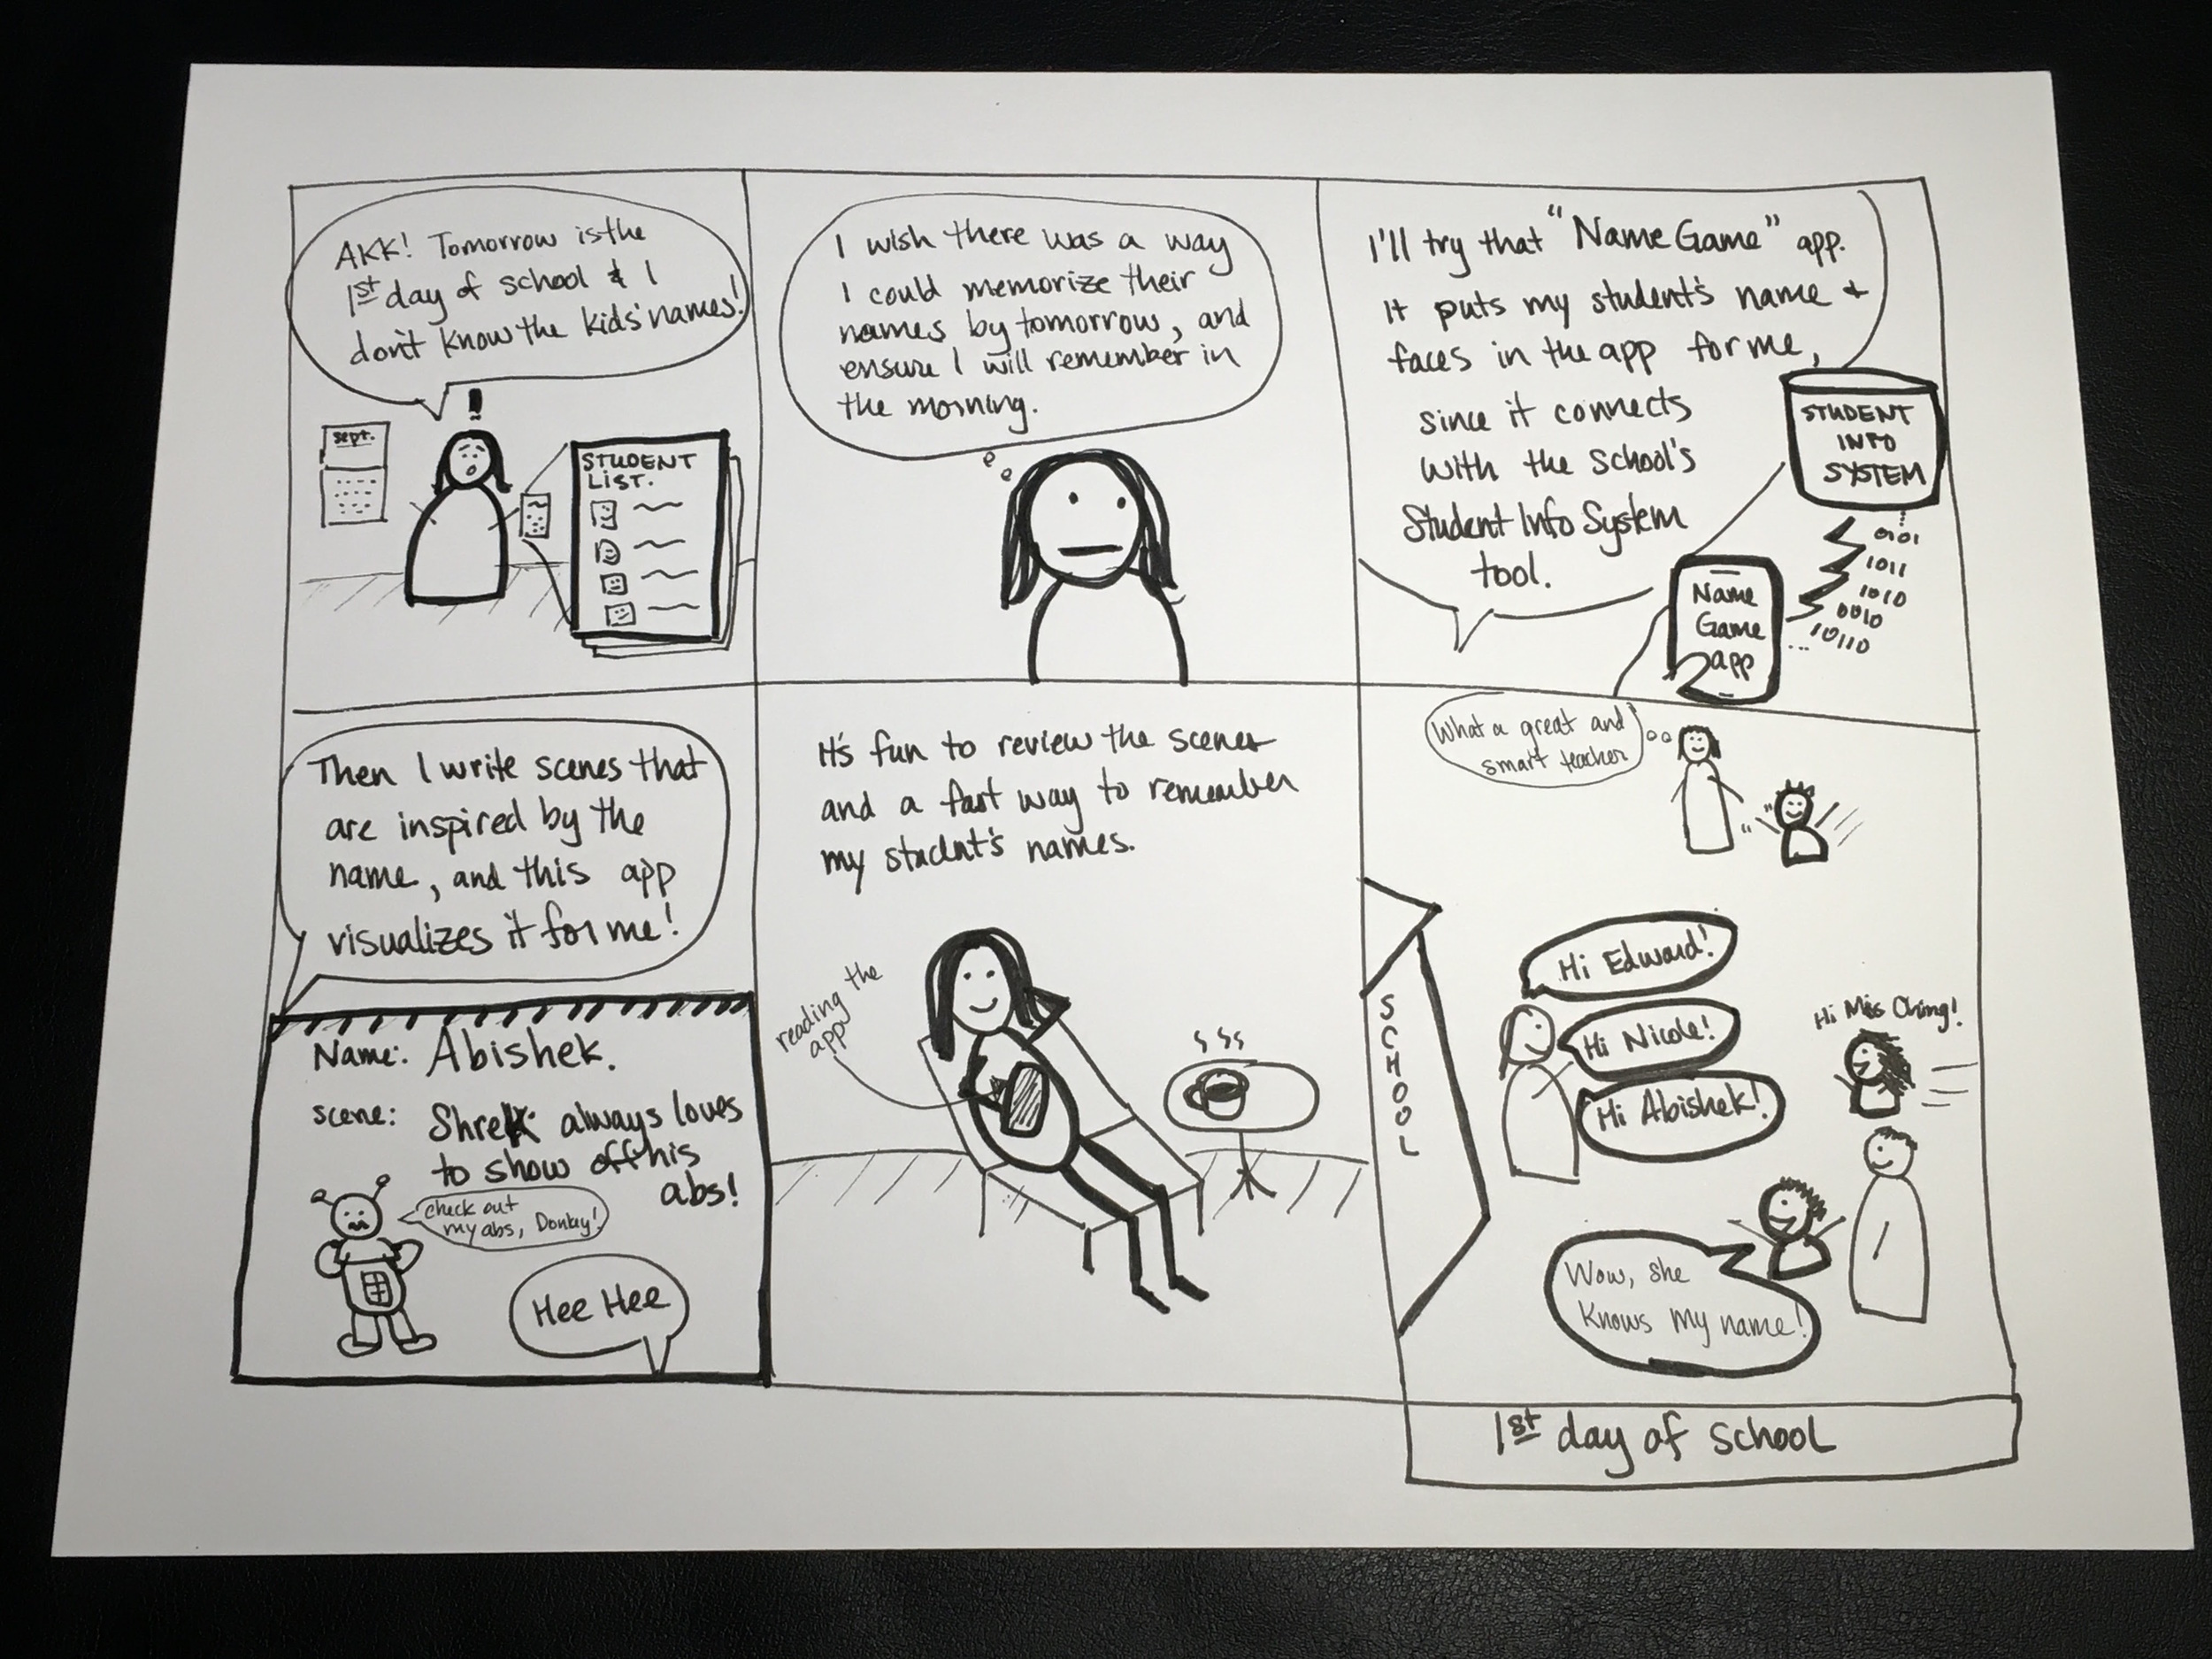 AKK! Tomorrow is the
1st day of school & I
don't know the kids' names!
!
sept.
STUDENT
LIST.
I wish there was a way
I could memorize their
names by tomorrow, and
ensure I will remember in
the morning.
I'll try that "Name Game" app.
It puts my student's name +
faces in the app for me,
since it connects
with the school's
Student Info System
tool.
STUDENT
INFO
SYSTEM
0101
1011
1010
0010
10110
...
Name
Game
app
Then I write scenes that
are inspired by the
name, and this app
visualizes it for me!
Name: Abishek.
scene: Shrek always loves
to show off his
abs!
check out
my abs, Donkey!
Hee Hee
It's fun to review the scenes
and a fast way to remember
my student's names.
reading the
app
What a great and
smart teacher
SCHOOL
Hi Edward!
Hi Nicole!
Hi Abishek!
Hi Miss Ching!
Wow, she
knows my name!
1st day of school